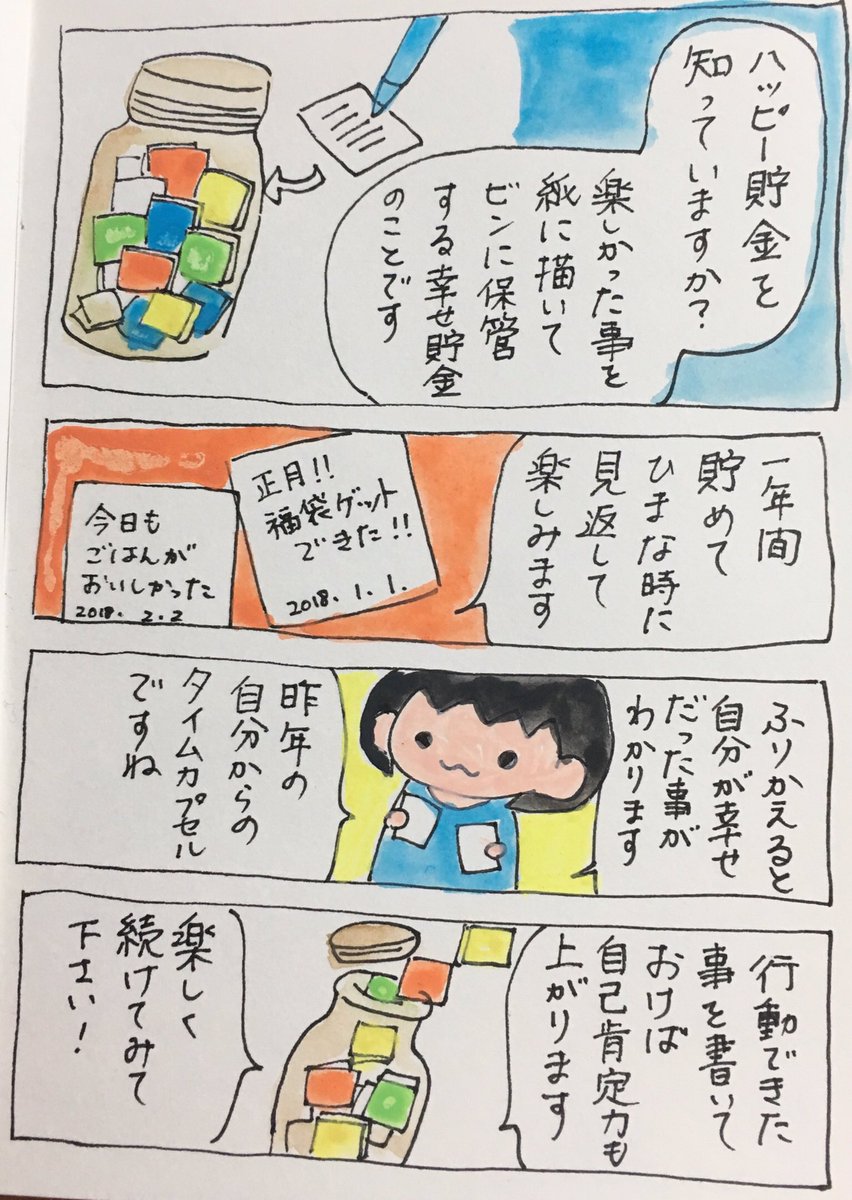 ハッピー貯金を
知っていますか?
楽しかった事を
紙に描いて
ビンに保管
する幸せ貯金
のことです
一年間
貯めて
ひまな時に
見返して
楽しみます
正月!!
福袋ゲット
できた!!
2018. 1. 1.
今日も
ごはんが
おいしかった
2018. 2.2
ふりかえると
自分が幸せ
だった事が
わかります
昨年の
自分からの
タイムカプセル
ですね
行動できた
事を書いて
おけば
自己肯定力も
上がります
楽しく
続けてみて
下さい!